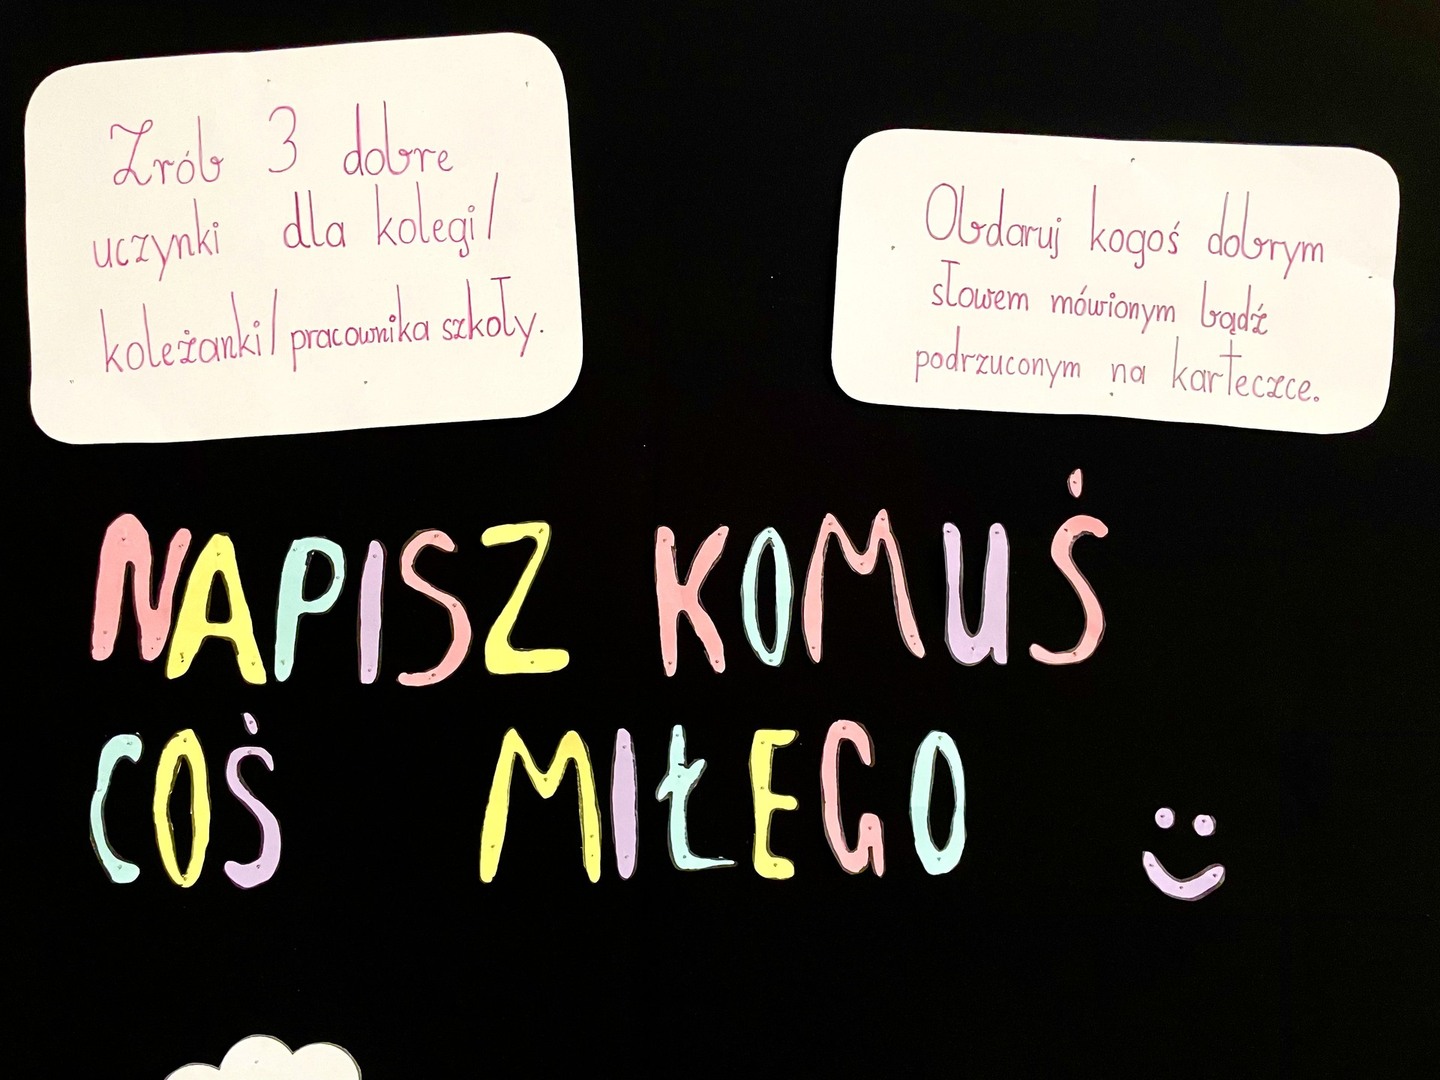 Zrób 3 dobre
uczynki dla kolegi/
koleżanki/pracownika szkoły.
Obdaruj kogoś dobrym
słowem mówionym bądź
podrzuconym na karteczce.
NAPISZ KOMUŚ
COŚ MIŁEGO